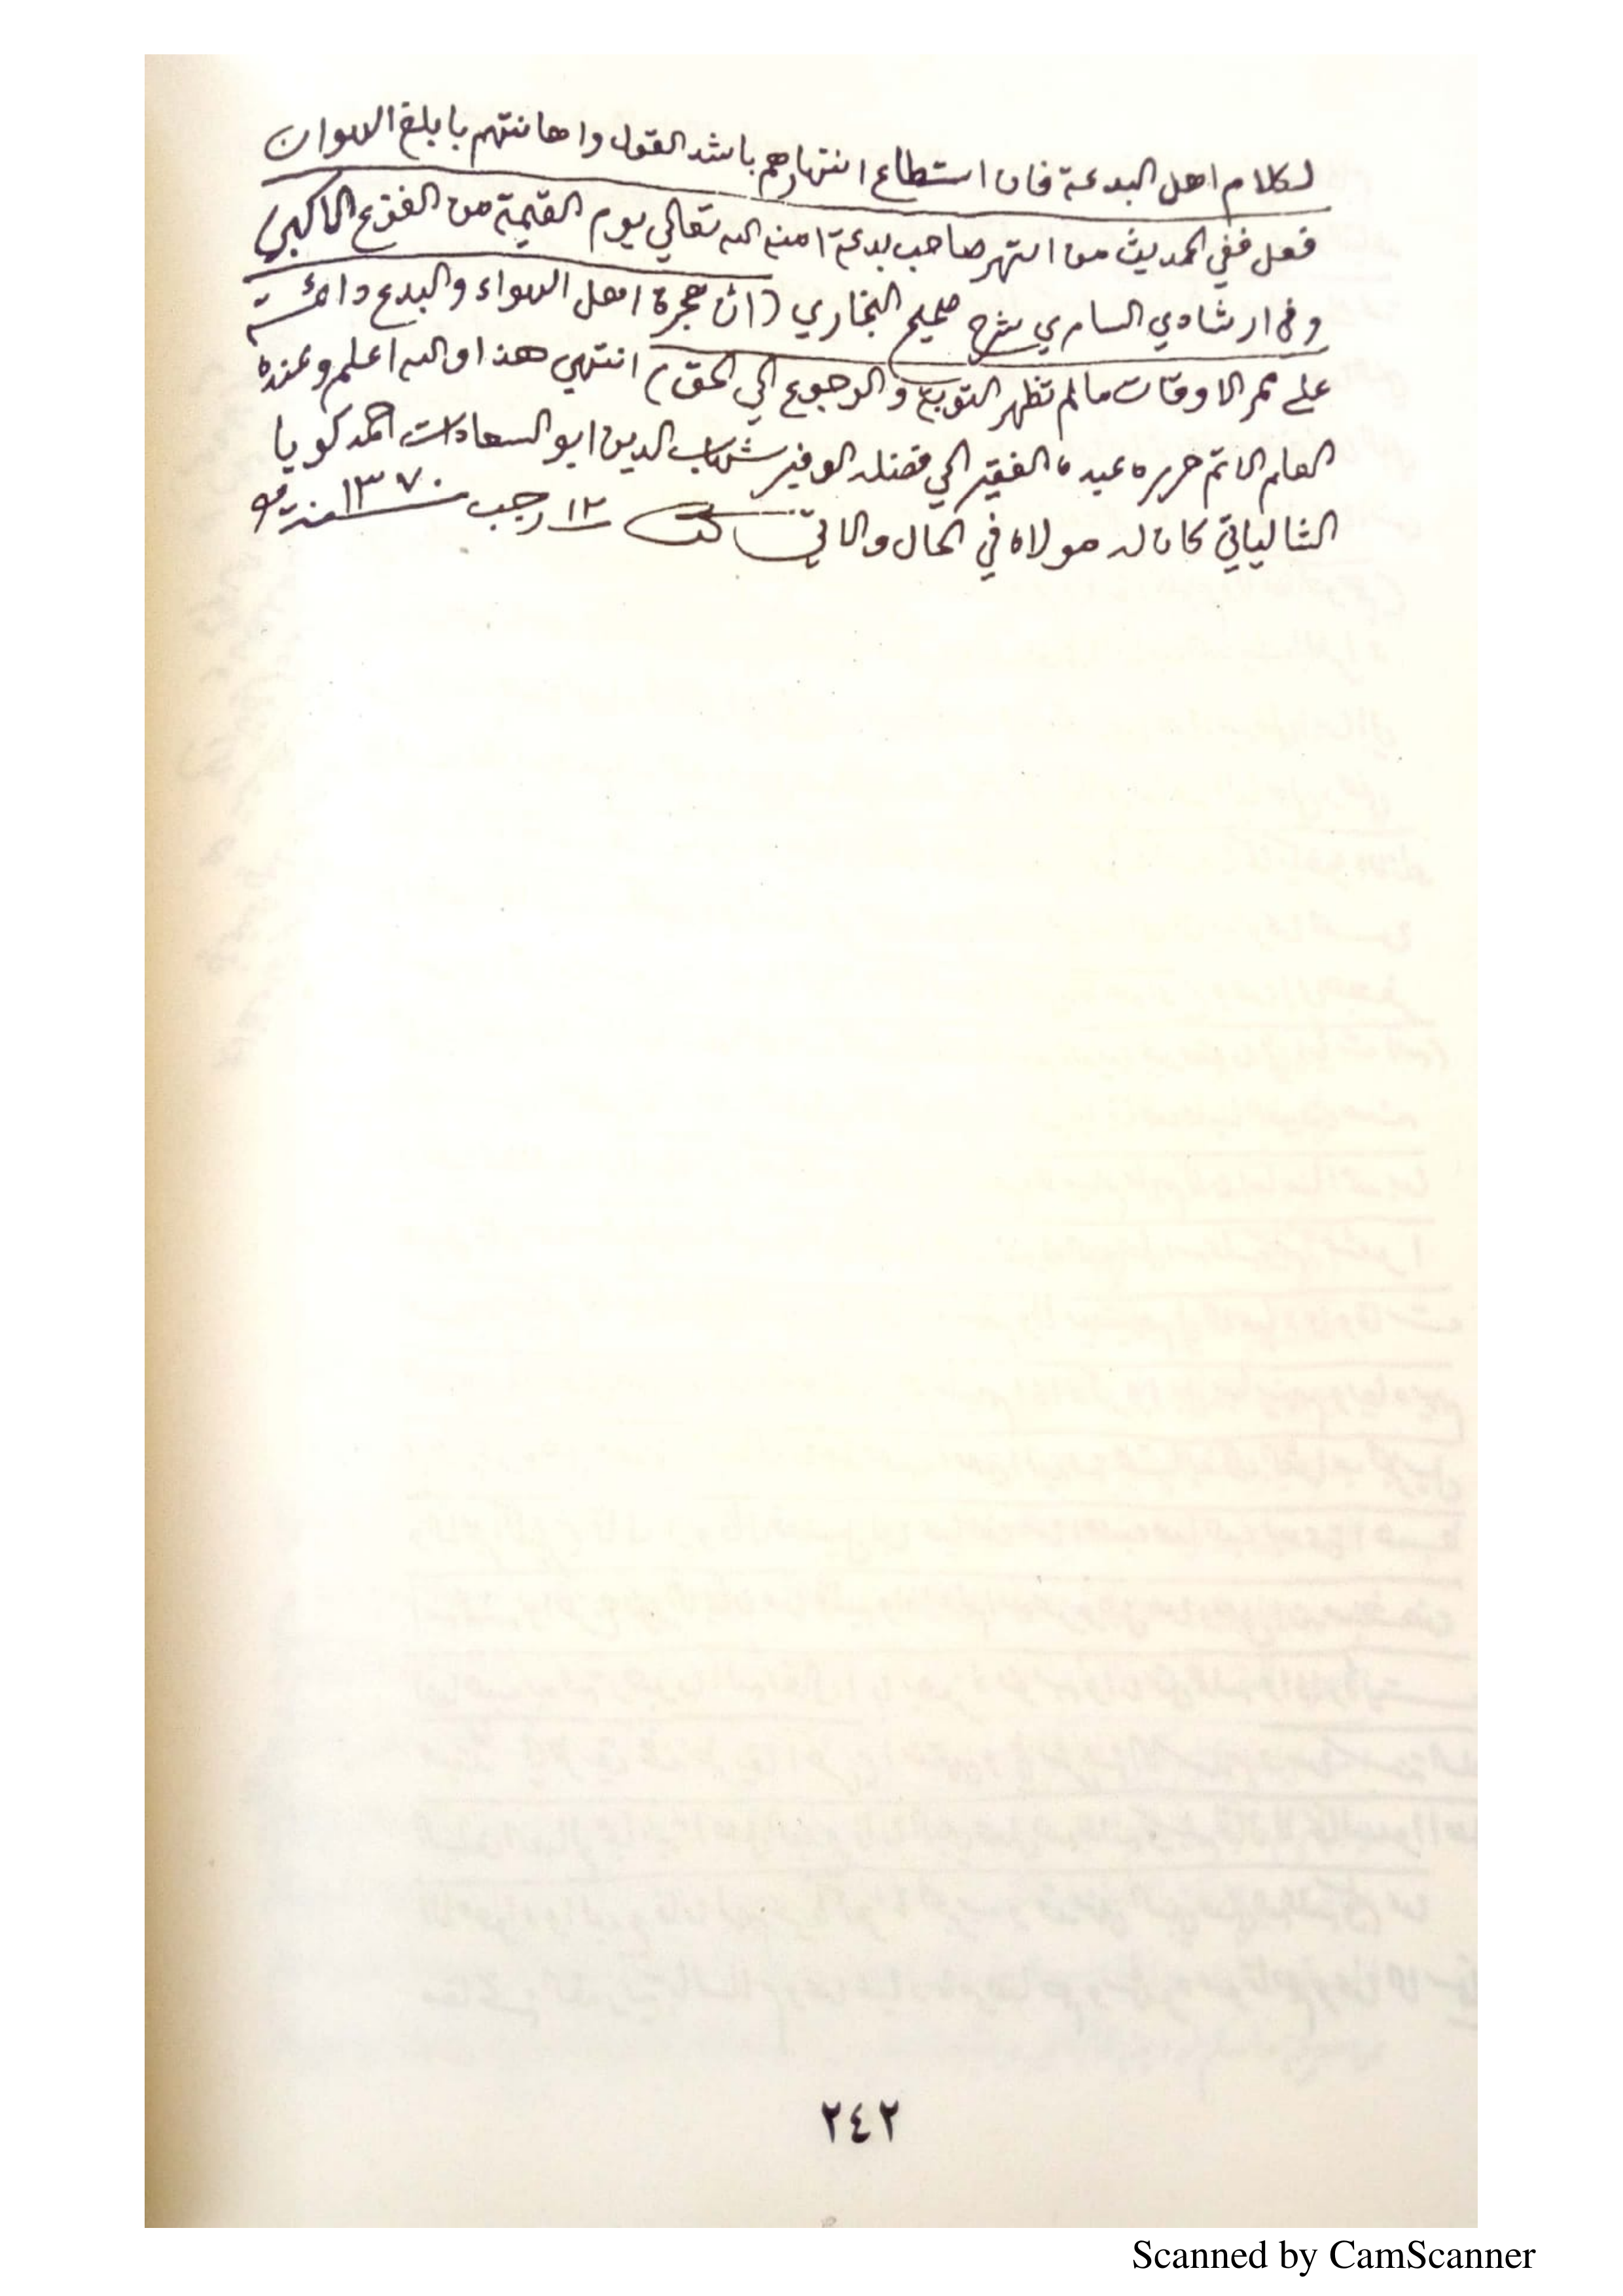 لكلام اهل البدعة فان استطاع انتهارهم باشد القول واهانتهم بابلغ الهوان
فعل ففي الحديث من انتهر صاحب بدعة امنه الله تعالي يوم القيمة من الفزع الاكبر
وفي ارشادي الساري شرح صحيح البخاري (ان هجرة اهل الهواء والبدع دائمة
علي ممر الاوقات مالم تظهر التوبة والرجوع الي الحق) انتهي هذا والله اعلم وعنده
العلم الاتم حرره عبده الفقير الي فضله الوفير شهاب الدين ابو السعادات احمد كويا
الشالياتي كان له مولاه في الحال والاتي كتب ١٢ رجب ١٣٧٠
٢٤٢
Scanned by CamScanner